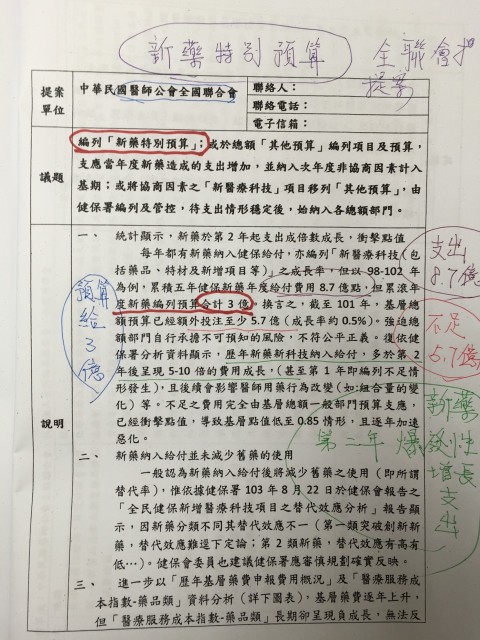 新藥特別預算
全聯會
提案
提案單位
中華民國醫師公會全國聯合會
聯絡人：
聯絡電話：
電子信箱：
議題
編列「新藥特別預算」；或於總額「其他預算」編列項目及預算，
支應當年度新藥造成的支出增加，並納入次年度非協商因素計入
基期；或將協商因素之「新醫療科技」項目移列「其他預算」，由
健保署編列及管控，待支出情形穩定後，始納入各總額部門。
說明
一、 統計顯示，新藥於第 2 年起支出成倍數成長，衝擊點值
每年都有新藥納入健保給付，亦編列「新醫療科技(包
括藥品、特材及新增項目等)」之成長率，但以 98-102 年
為例，累積五年健保新藥年度給付費用 8.7 億，但累滾年
度新藥編列預算合計 3 億，換言之，截至 101 年，基層總
額預算已經額外投注至少 5.7 億（成長率約 0.5%）。強迫總
額部門自行承擔不可預知的風險，不符公平正義。復依健
保署分析資料顯示，歷年新藥新科技納入給付，多於第 2
年後呈現 5-10 倍的費用成長，（甚至第 1 年即編列不足情
形發生），且後續會影響醫師用藥行為改變（如:組合量的變
化）等。不足之費用完全由基層總額一般部門預算支應，
已經衝擊點值，導致基層點值低至 0.85 情形，且逐年加速
惡化。
二、 新藥納入給付並未減少舊藥的使用
一般認為新藥納入給付後將減少舊藥之使用（即所謂
替代率），惟依據健保署 103 年 8 月 22 日於健保會報告之
「全民健保新增醫療科技項目之替代效應分析」報告顯
示，因新藥分類不同其替代效應不一（第一類突破創新新
藥，替代效應難逕下定論；第 2 類新藥，替代效應有高有
低…）。健保會委員也建議健保署應審慎規劃確實反映。
三、 進一步以「歷年基層藥費申報費用概況」及「醫療服務成
本指數-藥品類」資料分析（詳下圖表），基層藥費逐年上升，
但「醫療服務成本指數-藥品類」長期卻呈現負成長，無法反
預算
給
3
億
支出
8.7億
不足
5.7億
新藥
第二年 爆發性
增長
支出